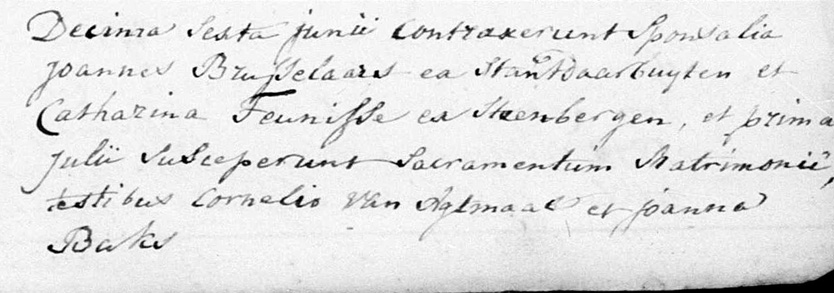 Decima Sexta junii Contraxerunt Sponsalia
Joannes Brusselaars ex Stantdaarbuyten et
Catharina Teunisse ex Steenbergen, et prima
Julii Susceperunt Sacramentum Matrimonii,
testibus Cornelio Van Agtmaal et Joanna
Baks